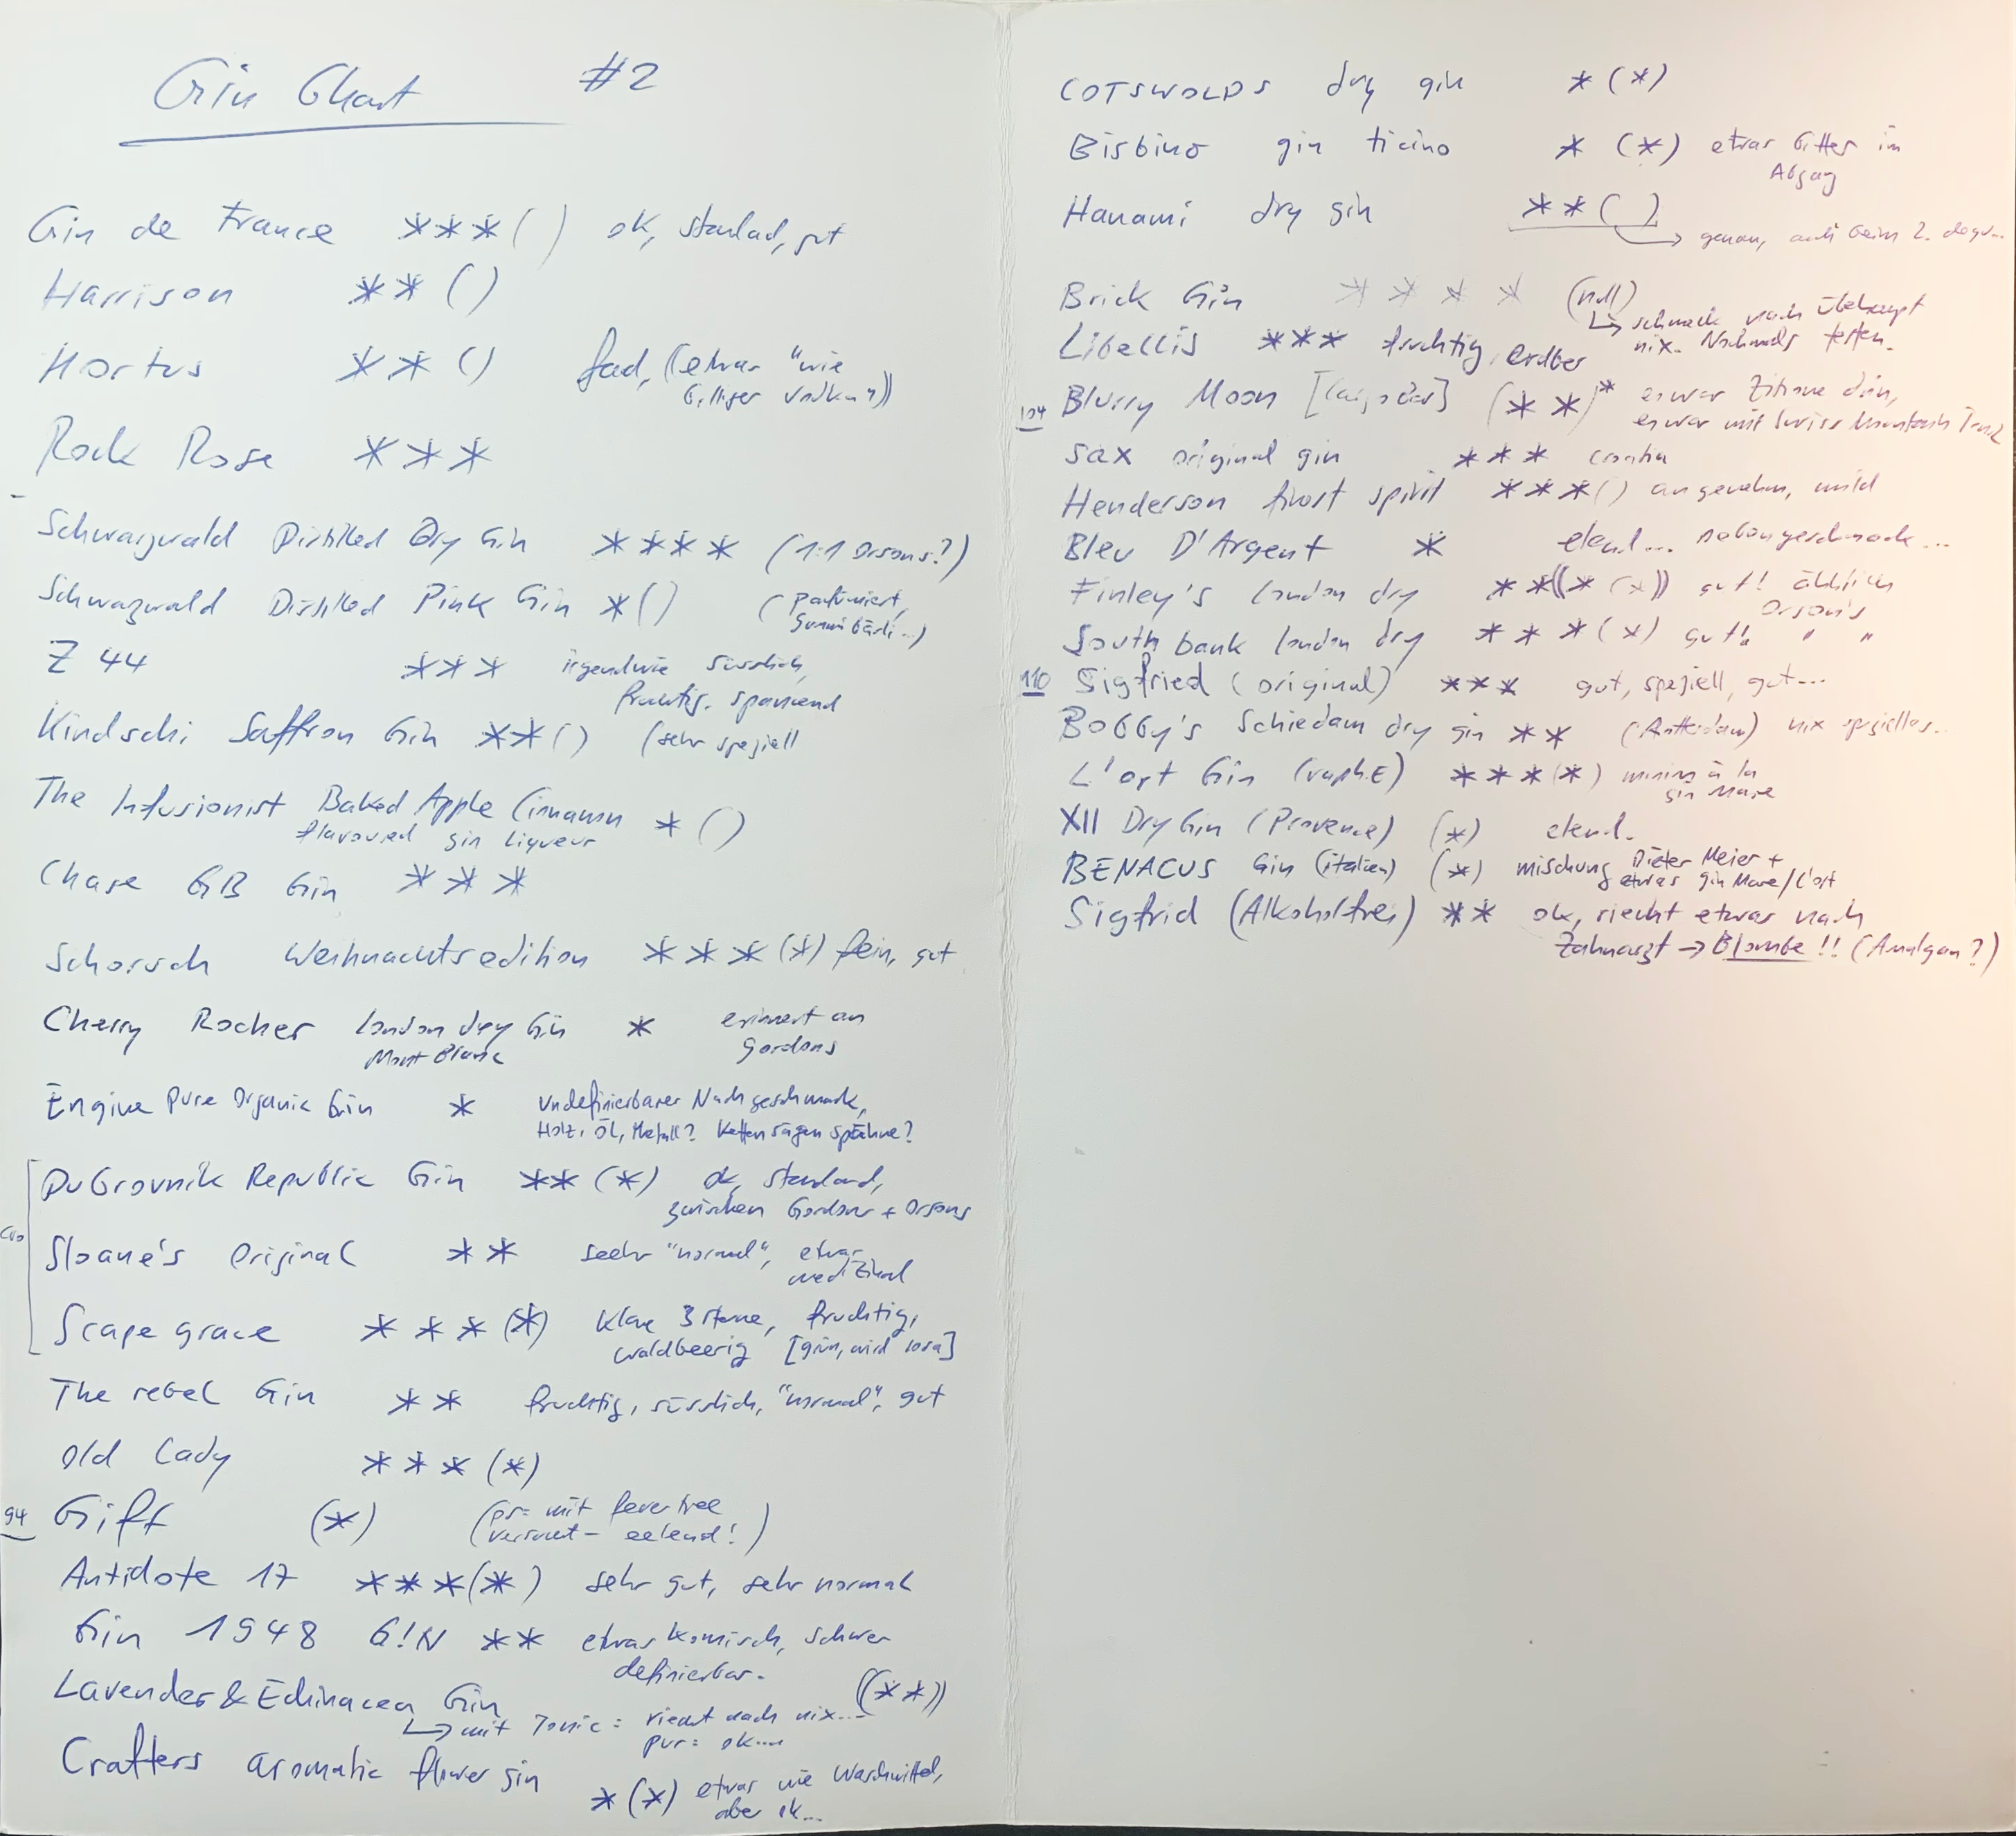 Gin Chart #2
Gin de France ***( ) ok, standad, gut
Harrison **( )
Hortus **( ) fad, ((etwas "wie
billiger Vodka"))
Rock Rose ***
Schwarzwald Distilled Dry Gin **** (1:1 Orsons?)
Schwazwald Distilled Pink Gin *( ) (parfümiert,
Gummibärli...)
Z 44 *** irgendwie süsslich,
fruchtig, spannend
Kindschi Saffron Gin **( ) (sehr speziell
The Infusionist Baked Apple Cinnamn *( )
flavoured gin liqueur
Chase GB Gin ***
Schorsch Weihnachtsedition ***(*) fein, gut
Cherry Rocher london dry Gin * erinnert an
Mont Blanc Gordons
Engine Pure Organic Gin * undefinierbarer Nachgeschmack,
Holz, Öl, Metall? Kettensägen spähne?
Dubrovnik Republic Gin **(*) ok, standard,
zwischen Gordons + Orsons
Sloane's Original ** seehr "normal", etwas
medizinal
Scapegrace ***(*) klare 3 sterne, fruchtig,
waldbeerig [grün, wird rosa]
The rebel Gin ** fruchtig, süsslich, "normal", gut
Old Lady ***(*)
94 Gift (*) (ps= mit fever tree
versaut - eelend!)
Antidote 17 ***(*) sehr gut, sehr normal
Gin 1948 G!N ** etwas komisch, schwer
definierbar.
Lavender & Echinacea Gin ((**))
↳ mit Tonic: riecht nach nix...
pur: ok....
Crafters aromatic flower gin *(*) etwas wie Waschmittel,
aber ok...
COTSWOLDS dry gin *(*)
Bisbino gin ticino *(*) etwas bitter im
Abgang
Hanami dry gin **( )
→ genau, auch beim 2. degu...
Brick Gin **** (null)
↳ schmeck nach überhaupt
nix. Nochmals testen.
Libellis *** fruchtig, erdber
104 Blurry Moon (**)* es war Zitrone drin,
es war mit Swiss Mountain Tonic
Sax original gin *** croatia
Henderson finost spirit ***( ) angenehm, mild
Bleu D'Argent * elend... nebengeschmack...
Finley's london dry **((*(*)) gut! ähnlich
Orson's
South bank london dry ***(*) gut! " "
110 Sigfried (original) *** gut, speziell, gut...
Bobby's Schiedam dry gin ** nix spezielles..
L'ort Gin (Raph.E) ***(*) minim à la
gin Mare
XII Dry Gin (Provence) (*) elend.
BENACUS Gin (italien) (*) mischung Dieter Meier +
etwas gin Mare/L'ort
Sigfrid (Alkoholfrei) ** ok, riecht etwas nach
Zahnarzt → Blombe!! (Amalgan?)